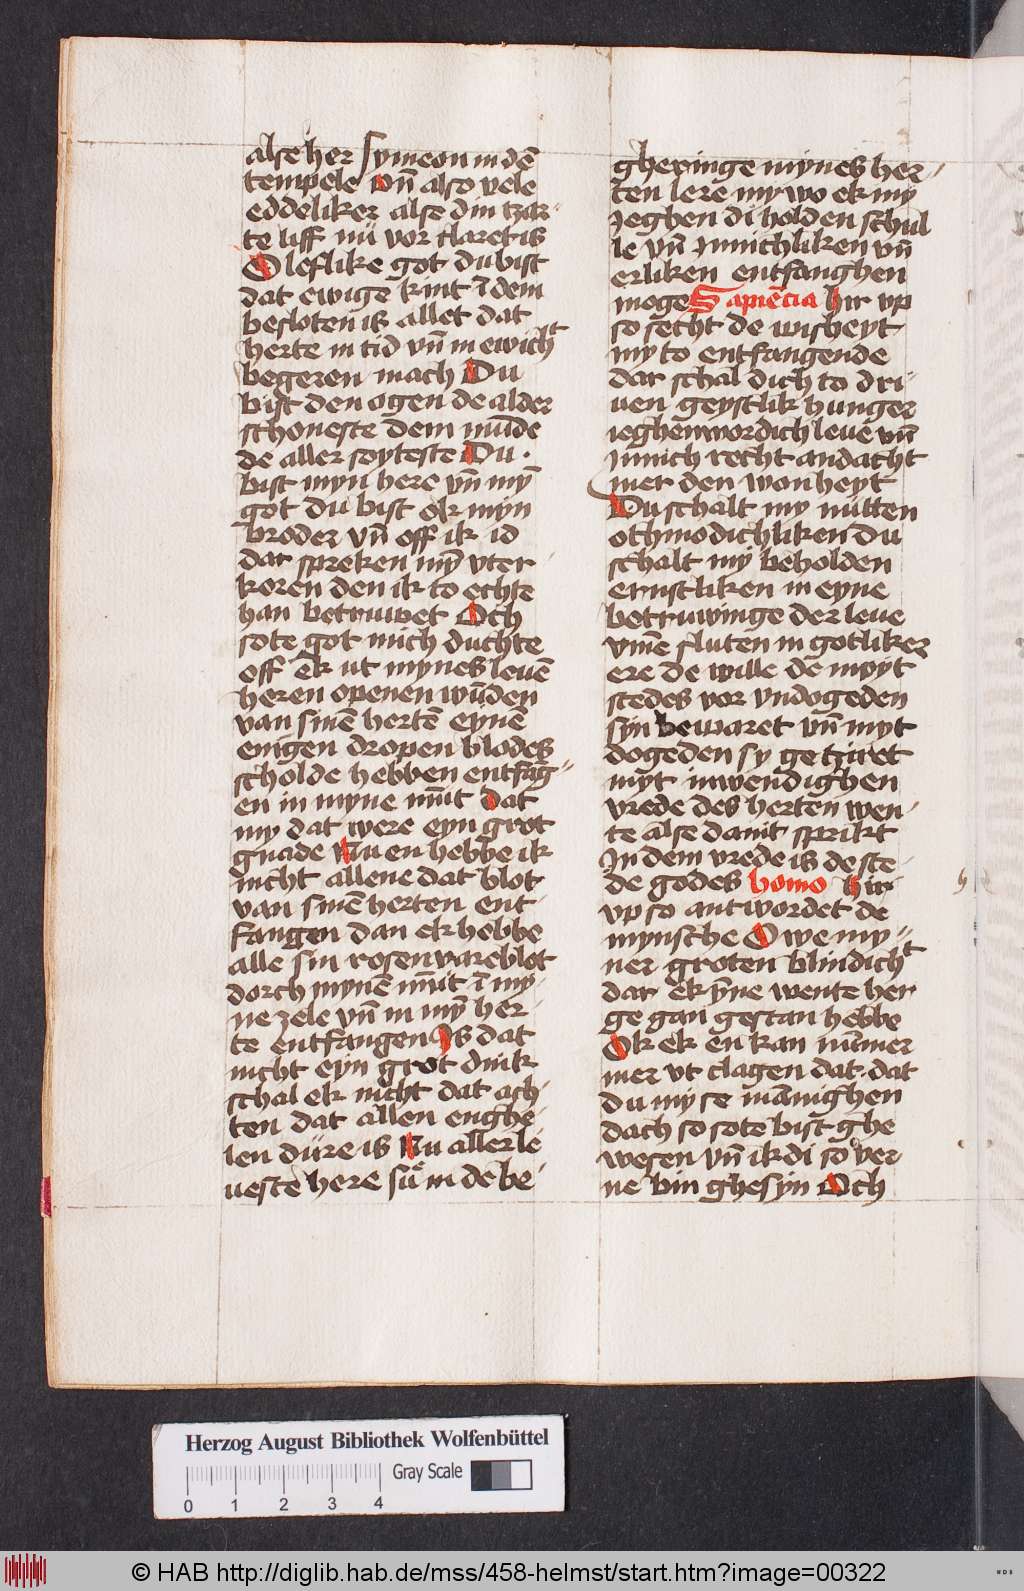 alse her symeon in dē
tempele vn̄ also vele
eddeliker alse din tzar-
te liff nů vor claret is
O leflike got du bist
dat ewige kint ī dem
besloten is allet dat
herte in tid vn̄ in ewicht
begeren mach Du
bist den ogen de alder
schoneste dem mūde
de aller soyteste Du
bist myn here vn̄ mȳ
got du bist ok myn
broder vn̄ off ik id
dar spreken mȳ vter
koren den ik to echte
han betruwet Och
sote got mich duchte
off ek ut mynes leuē
heren openen wūden
van sinē hertē eynē
enigen dropen blodes
scholde hebben entfāg-
en in myne mūt dat
my dat were eyn grot
gnade Nu en hebbe ik
nicht allene dat blot
van sinē herten ent-
fangen dan ek hebbe
alle sin rosenvare blot
dorch mynē mūt ī my-
ne zele vn̄ in mȳ her
te entfangen Is dat
nicht eyn grot dink
schal ek nicht dat ach-
ten dat allen enghe-
len důre is Nu aller le
ueste here sů in de be-
ghexinge mynes her-
ten lere my wo ek my
Jeghen di holden schul
le vn̄ Jnnichliken vn̄
erliken entfanghen
moge Sapiēcia hir vp
so secht de wisheyt
my to entfangende
dar schal dich to dri-
uen geystlik hunger
ieghenwordich leue vn̄
Jnnich recht andacht
mer den wonheyt
Du schalt my nutten
othmodichliken du
schalt my beholden
ernstliken in eyne
betruwinge der leue
vmē sluten in gotliker
ere de wille dē myyt
stedes vor vndogeden
syn bewaret vn̄ myt
dogeden sy ge tziret
myt inwendighen
vrede des herten wen-
te alse dauit sprikt
In dem vrede is de ste-
de godes homo hir
vp so antwordet de
mynsche Owe my-
ner groten blindicht
dar ek ȳne wente her
ge gan gestan hebbe
Ok ek en kan nūmer
mer vt clagen dat dat
du my se mānighen
dach so sote bist ghe
wesen vn̄ ik di so ver
ne bin ghesyn Och
Herzog August Bibliothek Wolfenbüttel
Gray Scale
0 1 2 3 4
© HAB http://diglib.hab.de/mss/458-helmst/start.htm?image=00322